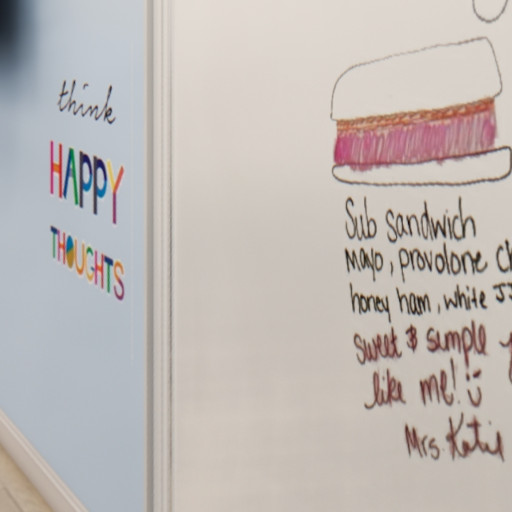 think
HAPPY
THOUGHTS
Sub sandwich
Mayo, provolone
honey ham, white JJ
sweet & simple
like me! :)
Mrs. Katie